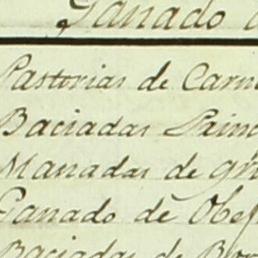 Ganado d
Pastorias de Carne
Baciadas Princ
Manadas de gñ
Ganado de Obej
Baciadas de Bor